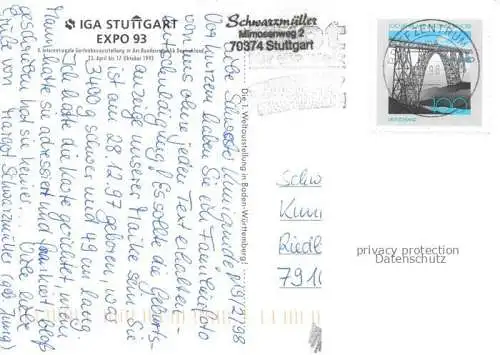 IGA STUTTGART
EXPO 93
5. Internationale Gartenbauausstellung in der Bundesrepublik Deutschland
23. April bis 17. Oktober 1993
Schwarzmüller
Mimosenweg 2
70374 Stuttgart
Die 1. Weltausstellung in Baden-Württemberg!
100
DEUTSCHLAND
ZENTRUM
Liebe Schwester Kunigunde, 15/2/98
Vor kurzem haben Sie ein Familienfoto
von uns ohne jeden Text erhalten -
Entschuldigung! Es sollte die Geburts-
anzeige unserer Maike sein. Sie
ist am 28.12.97 geboren, war
3400 g schwer und 49 cm lang.
Ich hatte die Karte gerichtet, mein
Mann hatte sie adressiert und frankiert, bloß
geschrieben hat sie keiner... Viele liebe
Grüße von Margot Schwarzmüller (geb. Jung)
Schw
Kuni
Riedl
7910
privacy protection
Datenschutz